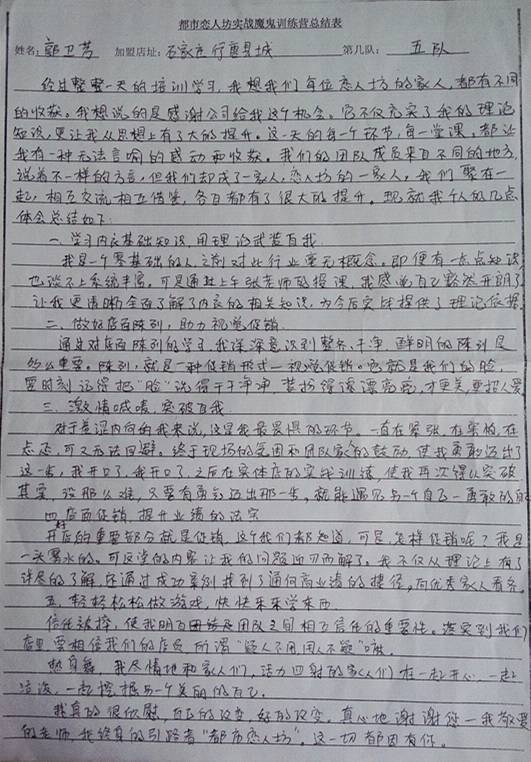 都市恋人坊实战魔鬼训练营总结表
姓名：郭卫芳 加盟店址：石家庄行唐县城 第几队： 五队
经过整整一天的培训学习，我想我们每位恋人坊的家人，都有不同
的收获。我想说的是感谢公司给我这个机会。它不仅充实了我的理论
知识，更让我从思想上有了大的提升。这一天的每一个环节，每一堂课，都让
我有一种无法言喻的感动和收获。我们的团队成员来自不同的地方，
说着不一样的方言，但我们却成了一家人，恋人坊的一家人，我们聚在一
起，相互交流相互借鉴，各自都有了很大的提升。现就我个人的几点
体会总结如下：
一、学习内衣基础知识，用理论武装自我
我是一个零基础的人，之前对此行业毫无概念。即便有一点点知识
也谈不上系统丰富。可是通过上午张老师的授课，我感觉自己豁然开朗了
让我更清晰全面了解了内衣的相关知识，为今后实践提供了理论依据
二、做好店面陈列，助力视觉促销
通过对店面陈列的学习，我深深意识到整齐、干净、鲜明的陈列是
多么重要。陈列，就是一种促销形式—视觉促销。它就是我们的脸，
要时刻记得把“脸”洗得干干净净，装扮得漂漂亮亮，才更美，更招人爱
三、激情喊麦，突破自我
对于羞涩内向的我来说，这是我最畏惧的环节。一直在紧张，在害怕，在
忐忑，可又无法回避。终于现场的氛围和团队家人的鼓励，使我勇敢迈出了
这一步，我开口了，我开口了，之后在实体店的实战训练，使我再次得以突破
其实，没那么难，只要有勇气迈出那一步，就能遇见另一个自己—勇敢的自
四、店面促销，提升业绩的法宝
开店的重要部分就是促销，这个我们都知道，可是，怎样促销呢？我是
一头雾水的。可这堂的内容让我的问题迎刃而解了。我不仅从理论上有了
详尽的了解，还通过成功案例找到了通向高业绩的捷径，向优秀家人看齐。
五、轻轻松松做游戏，快快乐乐学东西
信任被摔，使我明白团队之间相互信任的重要性。落实到我们
店里，要相信我们的店员，所谓“疑人不用用人不疑”嘛。
热身舞，我尽情地和家人们，活力四射的家人们在一起开心，一起
一起挖掘另一个美丽的自己。
我真的很欣慰，自己的改变，好的改变。真心地谢谢您—我敬爱
的老师，我终身的引路者“都市恋人坊”。这一切都因有你。